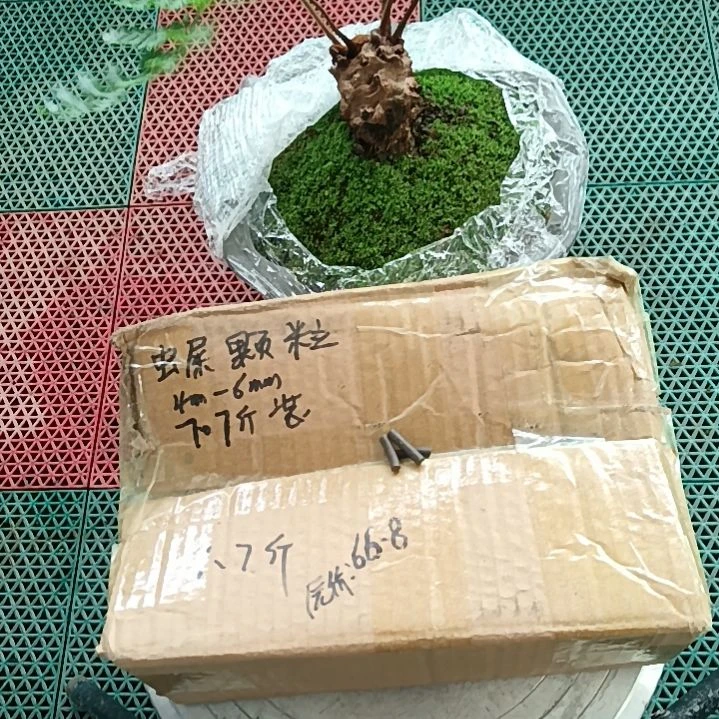 虫屎颗粒
4mm-6mm
707斤装
7斤
原价:66.8